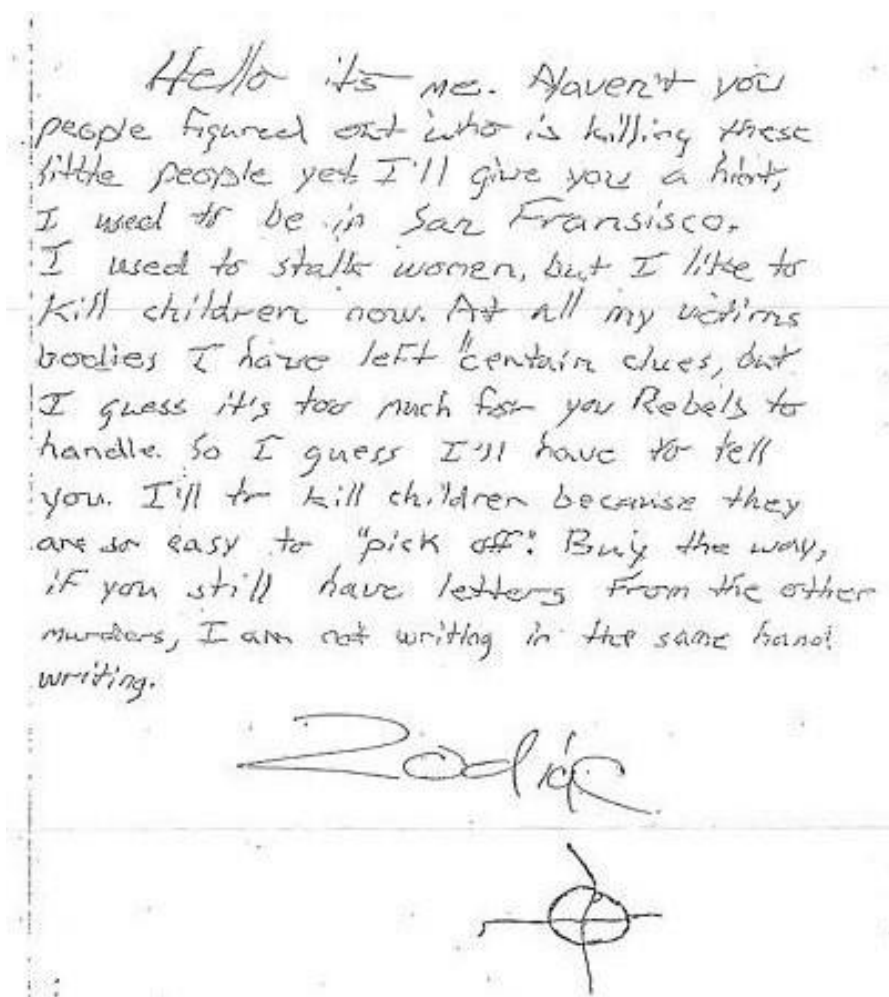 Hello its me. Haven't you
people figured out who is killing these
little people yet. I'll give you a hint,
I used to be in San Fransisco.
I used to stalk women, but I like to
kill children now. At all my victims
bodies I have left "certain clues, but
I guess it's too much for you Rebels to
handle. So I guess I'll have to tell
you. I'll to kill children because they
are so easy to "pick off". Buiy the way,
if you still have letters from the other
murders, I am not writing in the same hand
writing.
Zodiac